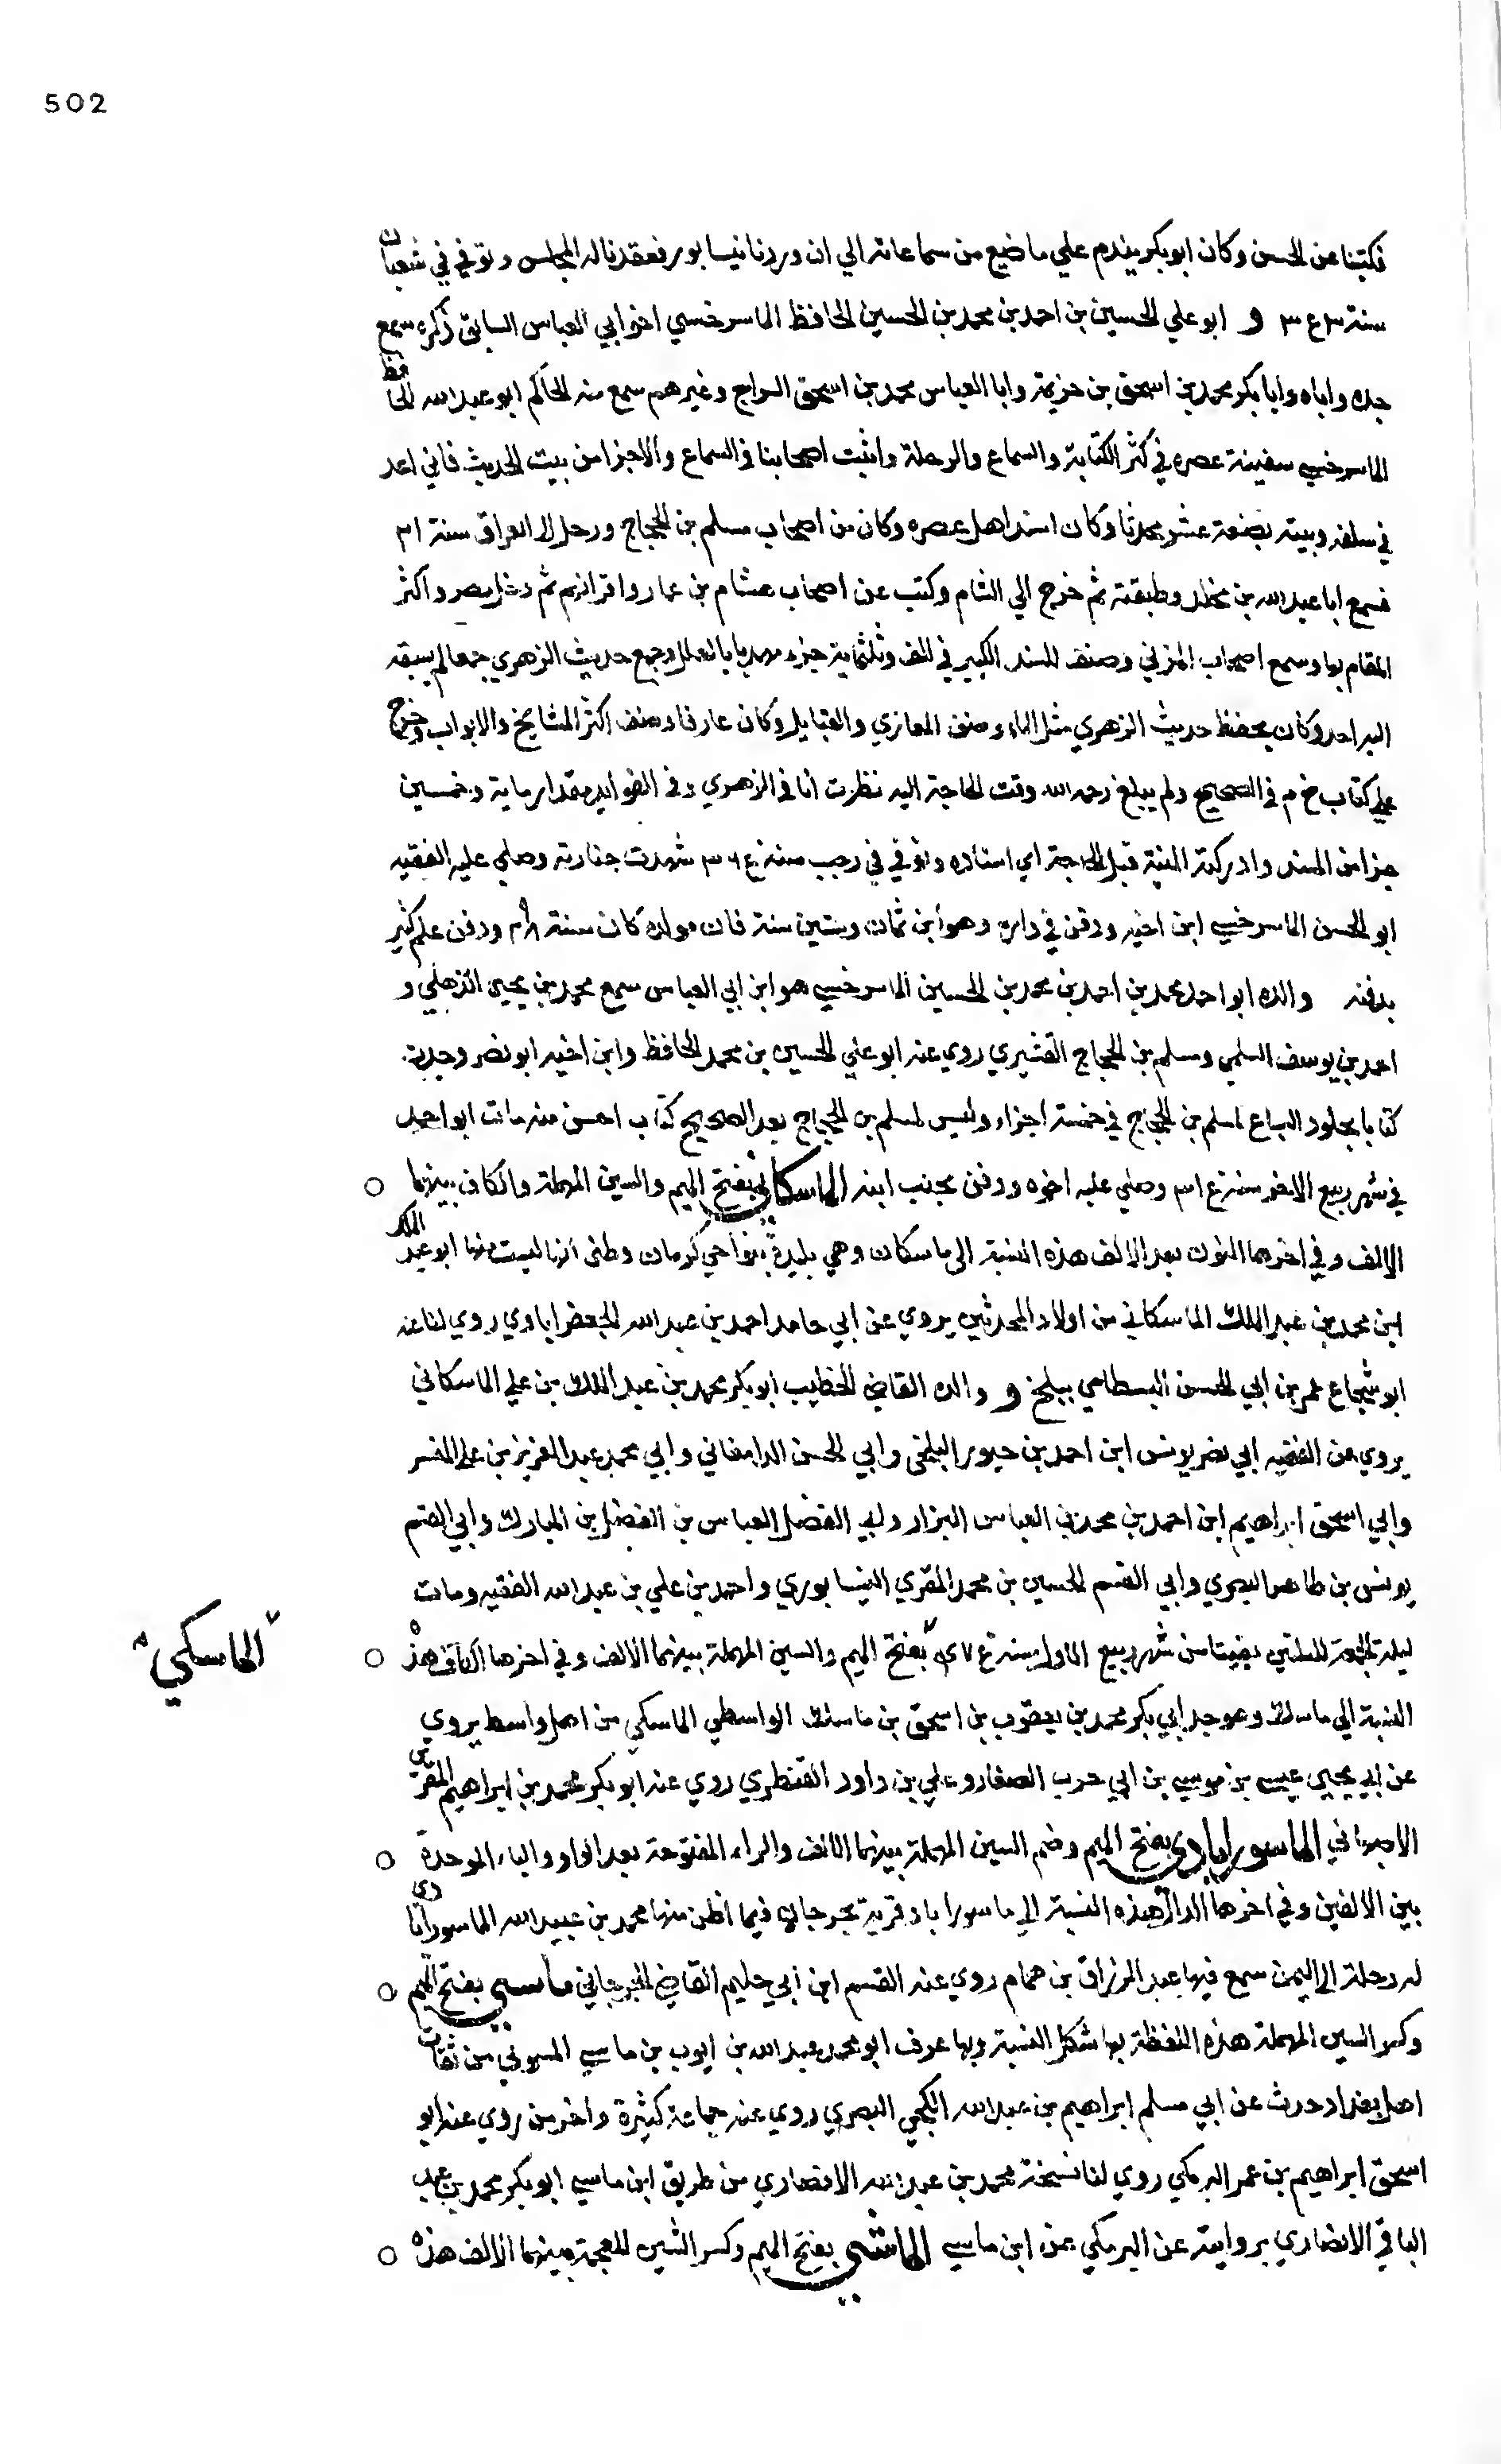 502
فكتبنا عن الحسن وكان ابو بكر يندم علي ما ضيع من سماعاته الي ان وردنا نيسابور فعقدنا له المجلس وتوفي في شعبان
سنة ٣٤٣ و ابو علي الحسين بن احمد بن محمد بن الحسين الحافظ الماسرخسي اخو ابي العباس السابق ذكره سمع
جده واباه وابا بكر محمد بن اسحق بن خزيمة وابا العباس محمد بن اسحق السراج وغيرهم سمع منه الحاكم ابو عبد الله الحافظ
الماسرخسي سفينة عصره في كثر الكتابة والسماع والرحلة واثبت اصحابنا في السماع والاجزا من بيت الحديث فاني اعد
في سلفه وبيته بضعة عشر محدثا وكان اسند اهل عصره وكان من اصحاب مسلم بن الحجاج ورحل الى العراق سنة
فسمع ابا عبد الله بن مخلد وطبقته ثم خرج الي الشام وكتب عن اصحاب هشام بن عمار واقرانهم ثم دخل مصر واكثر
المقام بها وسمع اصحاب المزني وصنف المسند الكبير في الف وثلثماية جزء مهذبا بالعلل وجمع حديث الزهري جمعا لم يسبقه
اليه احد وكان يحفظ حديث الزهري مثل الماء وصنف المغازي والقبايل وكان عارفا وصنف اكثر المشايخ والابواب وخرج
علي كتاب خ م في الصحيح ولم يبلغ رحمه الله وقت الحاجة اليه نظرت انا في الزهري وفي الفوايد مقدار ماية وخمسين
جزا من المسند وادركته المنية قبل الحاجة اي اسناده وتوفي في رجب سنة شهدت جنازته وصلي عليه الفقيه
ابو الحسن الماسرخسي ابن اخيه ودفن في داره وهو ابن ثمان وستين سنة فان مولده كان سنة ودفن علم كثير
بدفنه والده ابو احمد محمد بن احمد بن محمد بن الحسين الماسرخسي هو ابن ابي العباس سمع محمد بن يحيي الذهلي و
احمد بن يوسف السلمي ومسلم بن الحجاج القشيري روي عنه ابو علي الحسين بن محمد الحافظ وابن اخيه ابو نصر وحديثه
كتابا بجلود السباع لمسلم بن الحجاج في خمسة اجزاء وليس لمسلم بن الحجاج بعد الصحيح كتاب احسن منه مات ابو احمد
في شهر ربيع الاخر سنة وصلي عليه اخوه ودفن بجنب ابنه الماسكاني بفتح الميم والسين المهملة والكاف بينهما
الالف وفي اخرها النون بعد الالف هذه النسبة الى ماسكان وهي بليدة بنواحي كرمان وظني انها ليست منها ابو عبد الملك
ابن محمد بن عبد الملك الماسكاني من اولاد المحدثين يروي عن ابي حامد احمد بن عبد الله الجعفراباوي روي لنا عنه
ابو شجاع عمر بن ابي الحسن البسطامي ببلخ و والده القاضي الخطيب ابو بكر محمد بن عبد الملك بن علي الماسكاني
يروي عن الفقيه ابي نصر يونس ابن احمد بن حيوبر البلخي وابي الحسن الدامغاني وابي محمد عبد العزيز بن علي المفسر
وابي اسحق ابراهيم ابن احمد بن محمد بن العباس البزار وابي الفضل العباس بن الفضل بن المبارك وابي القسم
يونس بن طاهر البصري وابي القسم الحسين بن محمد المقري النيسابوري واحمد بن علي بن عبد الله الفقيه ومات
ليلة الجمعة لليلتين بقيتا من شهر ربيع الاول سنة بفتح الميم والسين المهملة بينهما الالف وفي اخرها الكاف هذه
"الماسكي"
النسبة الي ماسك وهو جد ابي بكر محمد بن يعقوب بن اسحق بن ماسك الواسطي الماسكي من اهل واسط يروي
عن ابي يحيي عيسى بن موسي بن ابي حرب الصفار وعلي بن داود القنطري روي عنه ابو بكر محمد بن ابراهيم المقري
الاصبهاني الماسوراباذي بفتح الميم وضم السين المهملة بينهما الالف والراء المفتوحة بعد الواو والباء الموحدة
بين الالفين وفي اخرها الدال هذه النسبة الي ماسوراباد قرية بجرجان فيما اظن منها محمد بن عبيد الله الماسوراباذي
له رحلة الى اليمن سمع فيها عبد الرزاق بن همام روي عنه القسم ابن ابي حليم القاضي الجرجاني ماسي بفتح الميم
وكسر السين المهملة هذه اللفظة بها شكل النسبة وبها عرف ابو محمد عبد الله بن ايوب بن ماسي من ثقات
اهل بغداد حدث عن ابي مسلم ابراهيم بن عبد الله الكجي البصري روي عنه جماعة كثيرة واخر من روي عنه ابو
اسحق ابراهيم بن عمر البرمكي روي لنا نسخة محمد بن عبد الله الانصاري من طريق ابن ماسي ابو بكر محمد بن عبد
الباقي الانصاري بروايته عن البرمكي عن ابن ماسي الماشي بفتح الميم وكسر الشين المعجمة بينهما الالف هذه